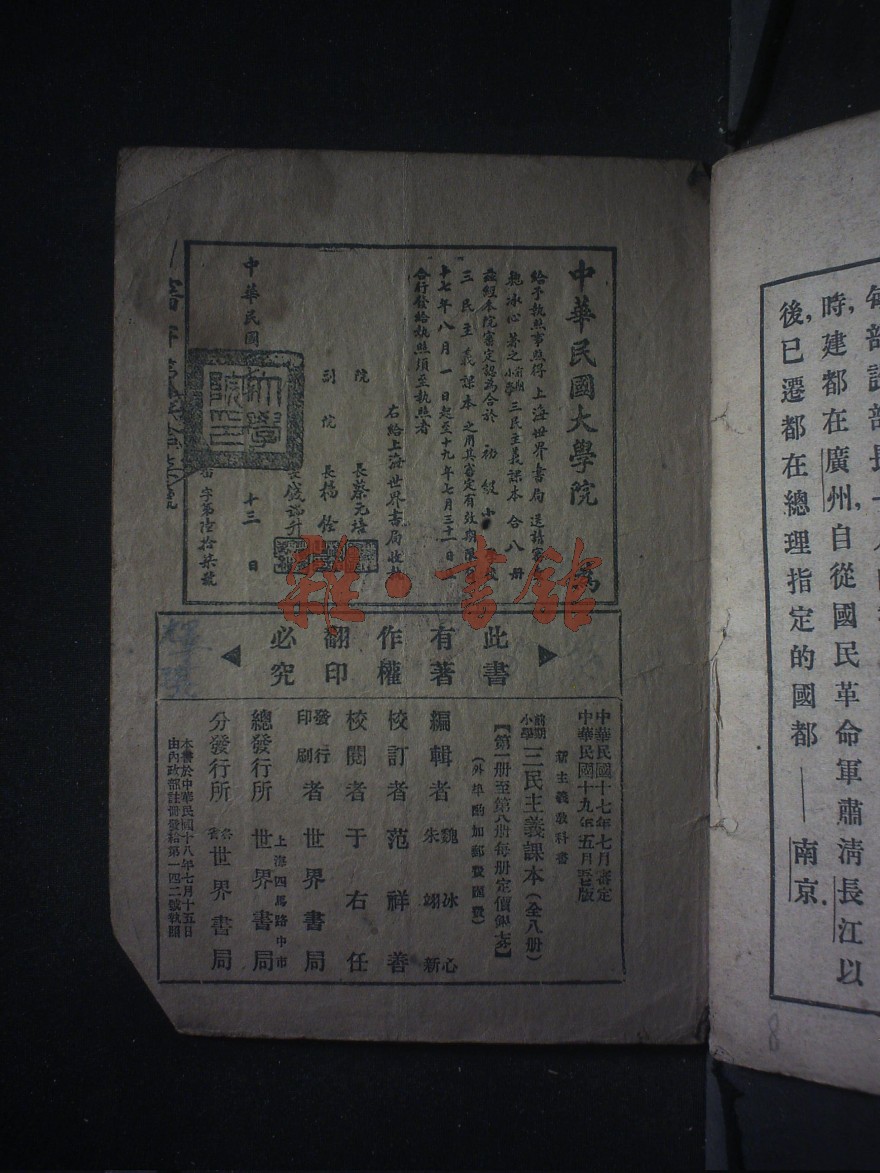 每部設部長一人
時，建都在廣州，自從國民革命軍肅淸長江以
後，已遷都在總理指定的國都——南京.
8
中華民國大學院 為
給予執照事照得 上海世界書局 送請審
魏冰心等之前期小學三民主義課本 合八冊
茲經本院審定認為合於 初級小
三民主義課本 之用其審定有效期限
十七年八月一日起至十九年七月三十一日止
合行發給執照須至執照者
右給上海世界書局收執
院長蔡元培
副院長楊銓
長錢端升
中華民國
十三日
字第陸拾柒號
大學院印
雜·書館
此書
有著
作權
翻印
必究
中華民國十七年七月審定
中華民國十九年五月
新主義教科書
前期小學 三民主義課本（全八冊）
【第一册至第八册每册定價
（外埠酌加郵費匯費）
編輯者 魏冰心 朱翊新
校訂者 范祥善
校閱者 于右任
發行印刷者 世界書局
上海四馬路中市
總發行所 世界書局
分發行所 各省 世界書局
本書於中華民國十八年七月十五日
由內政部註冊發給第一四二號執照